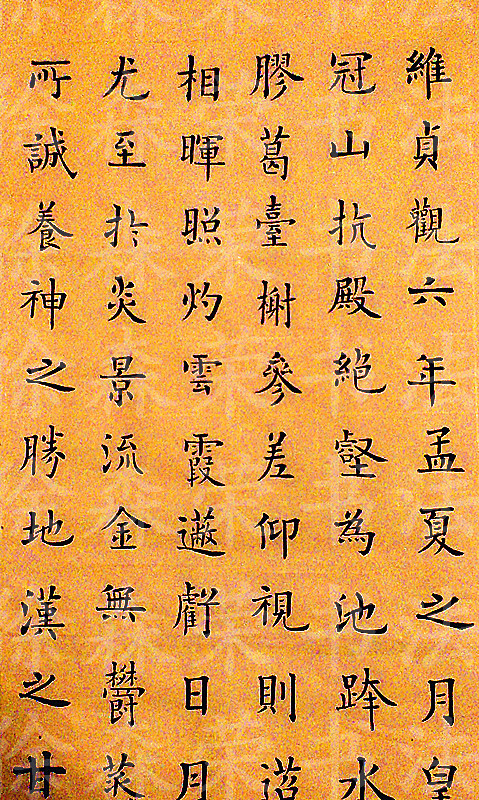 維貞觀六年孟夏之月皇
冠山抗殿絕壑為池跨水
膠葛臺榭參差仰視則迢
相暉照灼雲霞蔽虧日月
尤至扵炎景流金無鬱蒸
所誠養神之勝地漢之甘